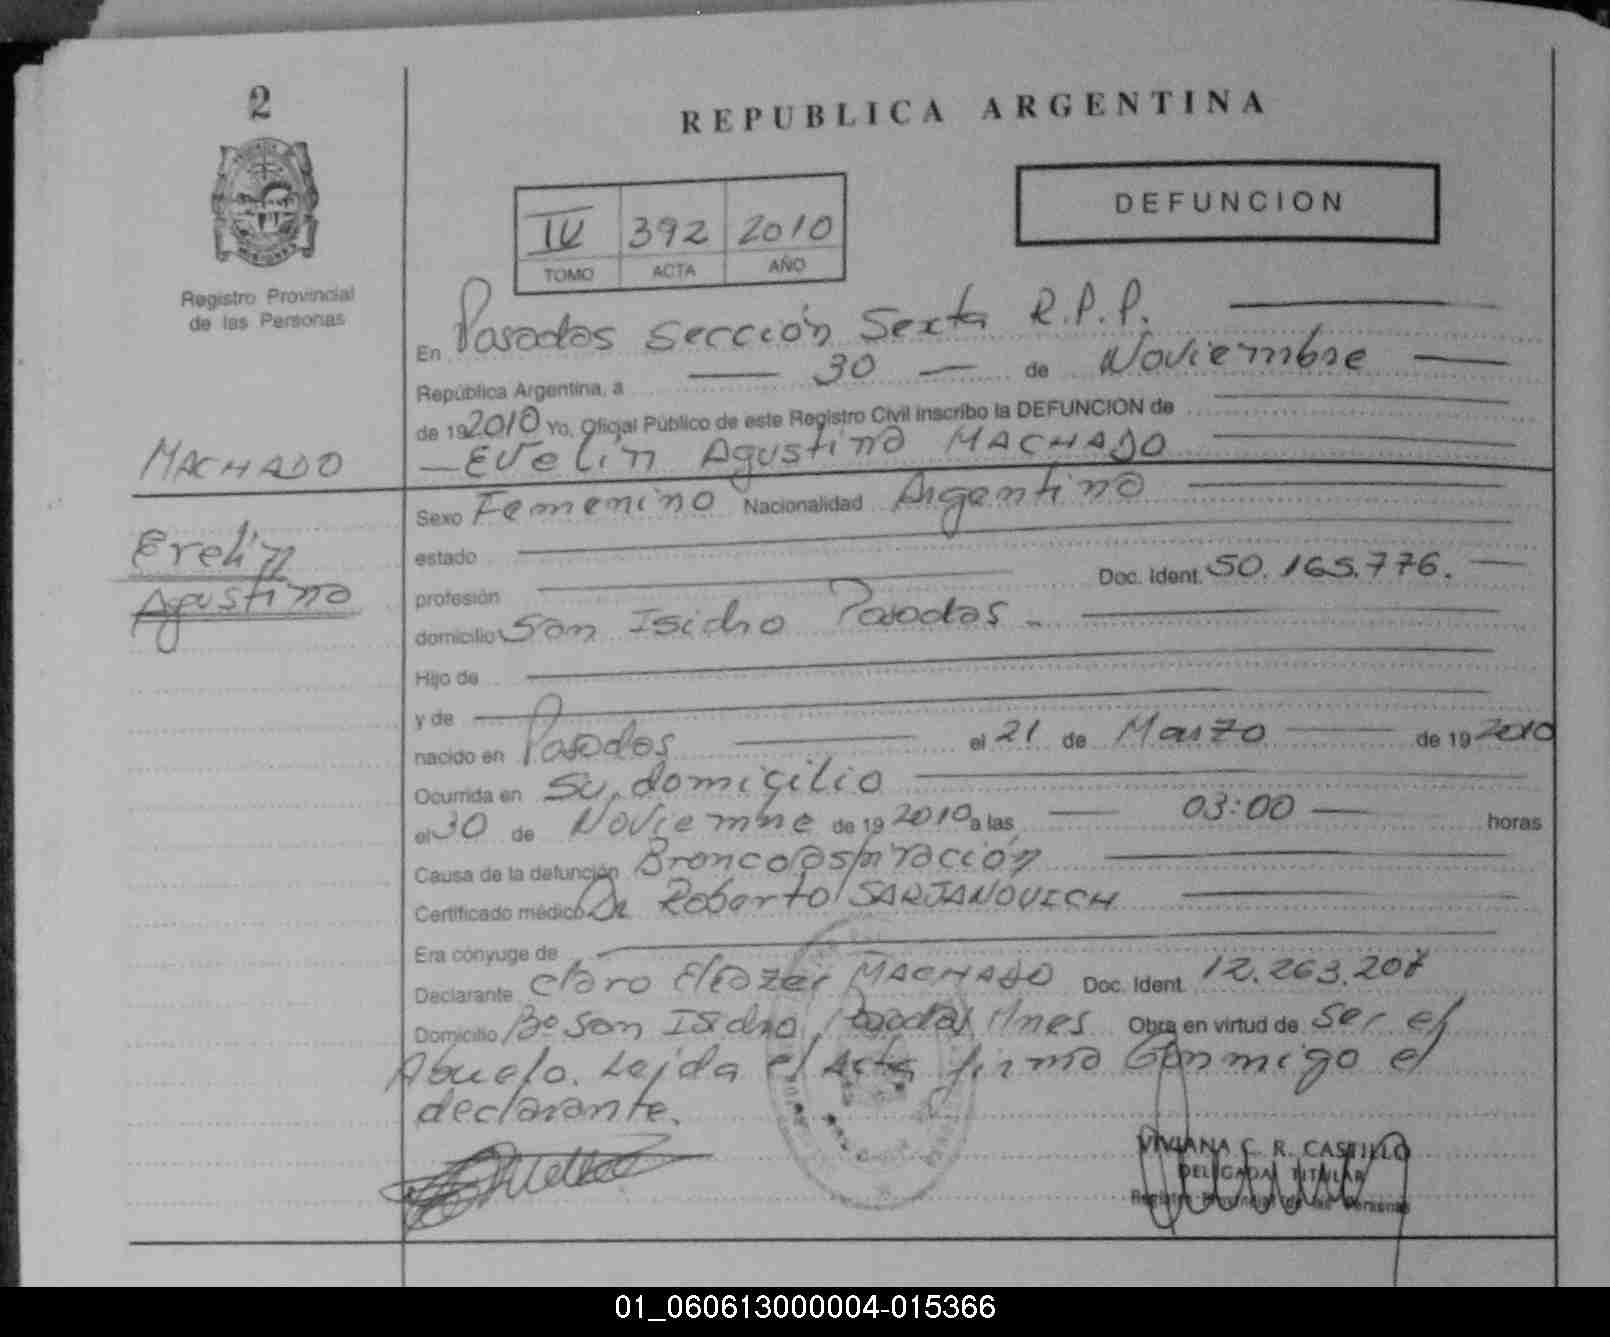 2
REPUBLICA ARGENTINA
DEFUNCION
IV 392 2010
TOMO ACTA AÑO
Registro Provincial
de las Personas
En Posadas Sección Sexta R.P.P.
República Argentina, a 30 de Noviembre
de 192010 Yo, Oficial Público de este Registro Civil inscribo la DEFUNCION de
MACHADO
Evelin Agustina MACHADO
Evelin
Agustina
Sexo Femenino Nacionalidad Argentina
estado
profesión Doc. Ident. 50.165.776.
domicilio San Isidro Posadas
Hijo de
y de
nacido en Posadas el 21 de Marzo de 19 2010
Ocurrida en Su domicilio
el 30 de Noviembre de 19 2010 a las 03:00 horas
Causa de la defunción Broncoaspiración
Certificado médico Dr Roberto SARJANOVICH
Era cónyuge de
Declarante Claro Eliazer MACHADO Doc. Ident. 12.263.207
Domicilio Bº San Isidro Posadas Mnes Obra en virtud de Ser el
Abuelo. Leída el Acta firma Conmigo el
declarante.
VIVIANA C. R. CASTILLO
DELEGADA TITULAR
Registro Provincial de las Personas
01_060613000004-015366